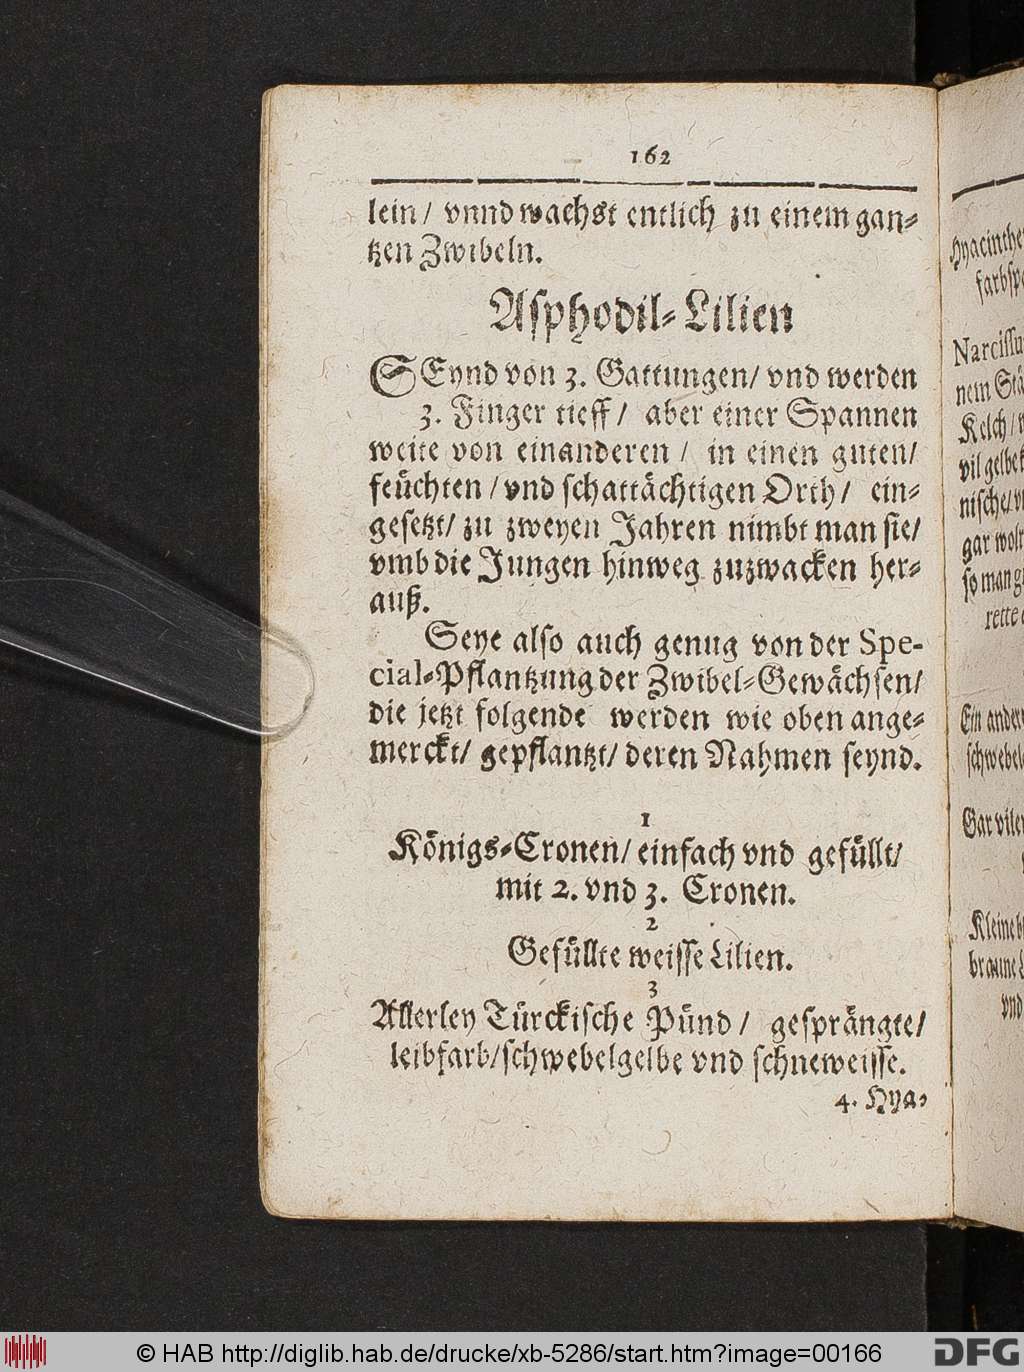 162
lein / vnnd wachst entlich zu einem gan-
tzen Zwibeln.
Asphodil-Lilien
SEynd von 3. Gattungen/ vnd werden
3. Finger tieff / aber einer Spannen
weite von einanderen / in einen guten/
feüchten / vnd schattächtigen Orth / ein-
gesetzt/ zu zweyen Jahren nimbt man sie/
vmb die Jungen hinweg zuzwacken her-
auß.
Seye also auch genug von der Spe-
cial-Pflantzung der Zwibel-Gewächsen/
die jetzt folgende werden wie oben ange-
merckt/ gepflantzt/ deren Nahmen seynd.
1
Königs-Cronen/ einfach vnd gefüllt/
mit 2. vnd 3. Cronen.
2
Gefüllte weisse Lilien.
3
Allerley Türckische Pünd / gesprängte/
leibfarb/ schwebelgelbe vnd schneweisse.
4. Hya-
Hyacinthe
farbsp
Narcissu
nem Stä
Kelch /
vil gelbe
nische/
gar wol
so man
rette
Ein ander
schwebel
Gar viler
Kleine
braune
vnd
© HAB http://diglib.hab.de/drucke/xb-5286/start.htm?image=00166
DFG